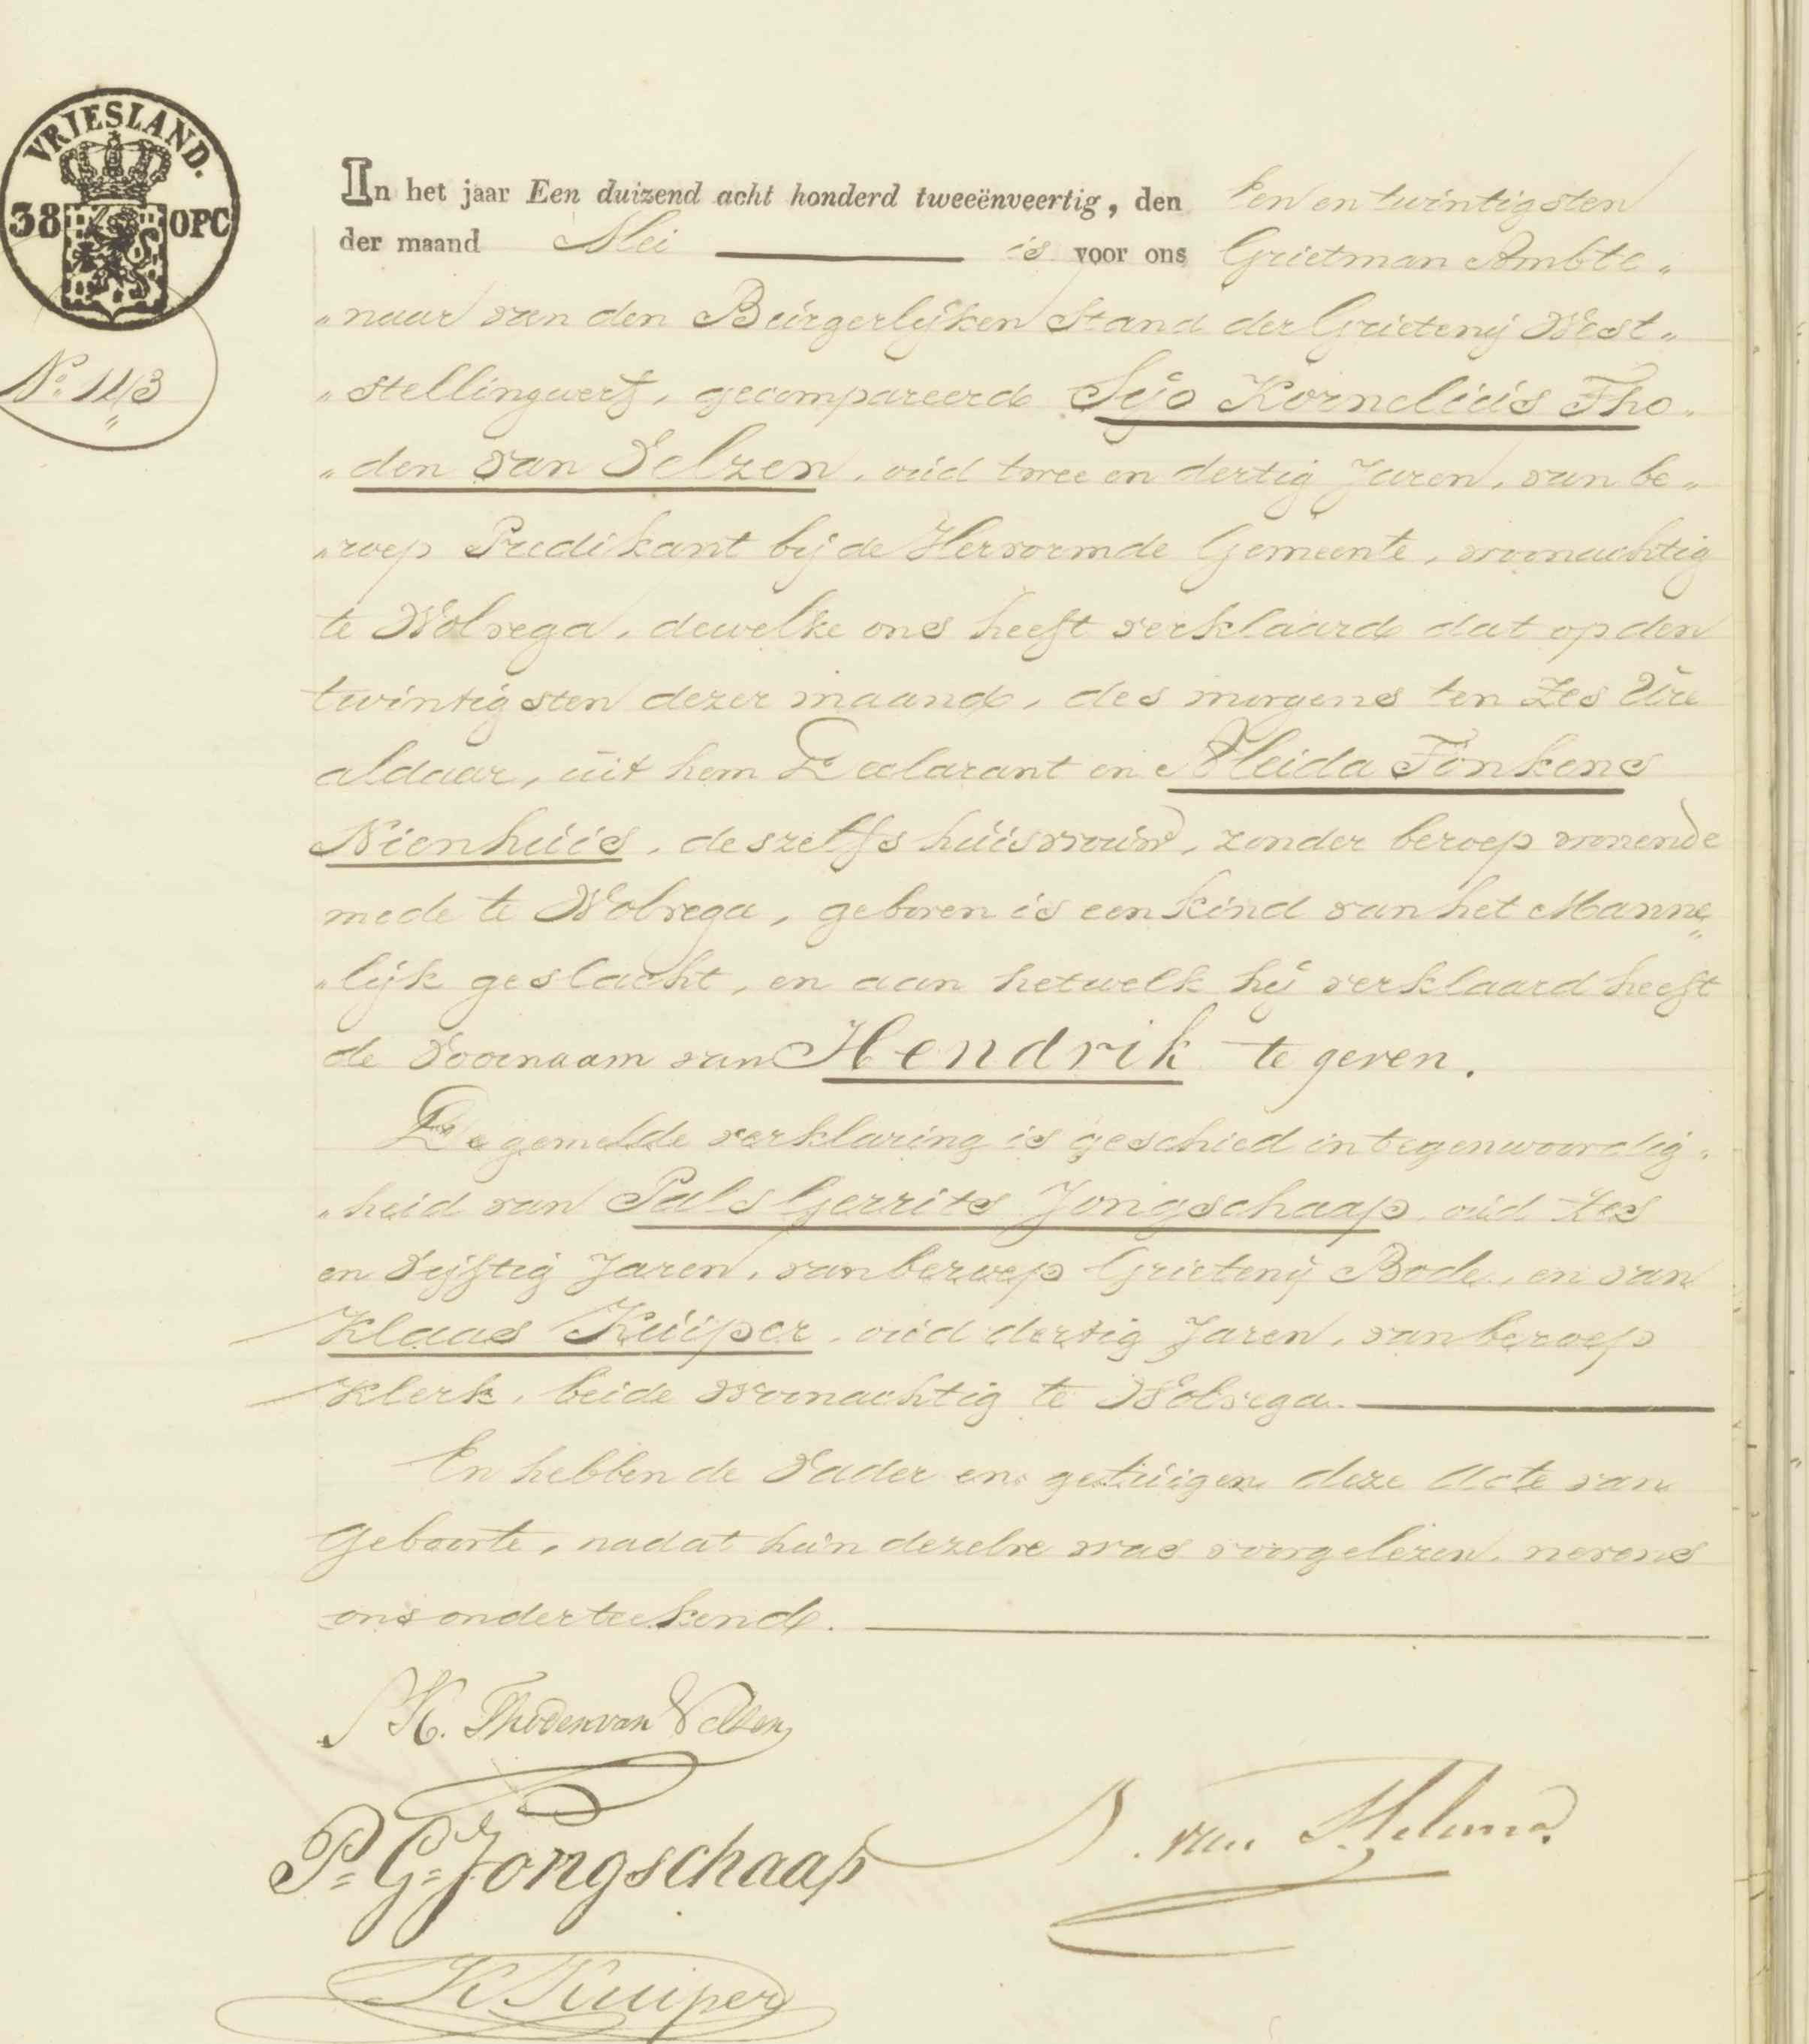 VRIESLAND.
38 OPC
No. 143
In het jaar Een duizend acht honderd tweeënveertig, den Een en twintigsten
der maand Mei is voor ons Grietman Ambte„
„naar van den Burgerlijken Stand der Grietenij West„
„stellingwerf, gecompareerd Sijo Kornelius Tho„
„den van Velzen, oud twee en dertig Jaren, van be„
„roep Predikant bij de Hervormde Gemeente, woonachtig
te Wolvega, dewelke ons heeft verklaard dat op den
twintigsten dezer maand, des morgens ten zes Ure
aldaar, uit hem Declarant en Aleida Fonkens
Nienhuis, deszelfs huisvrouw, zonder beroep wonende
mede te Wolvega, geboren is een kind van het Manne„
„lijk geslacht, en aan hetwelk hij verklaard heeft
de Voornaam van Hendrik te geven.
De gemelde verklaring is geschied in tegenwoordig„
„heid van Pals Gerrits Jongschaap, oud zes
en Vijftig Jaren, van beroep Grietenij Bode, en van
Klaas Kuiper, oud dertig Jaren, van beroep
Klerk, beide woonachtig te Wolvega.
En hebben de Vader en getuigen deze Acte van
Geboorte, nadat hun dezelve was voorgelezen, nevens
ons onderteekend.
S K. Thoden van Velzen
P. G. Jongschaap
van
K Kuiper